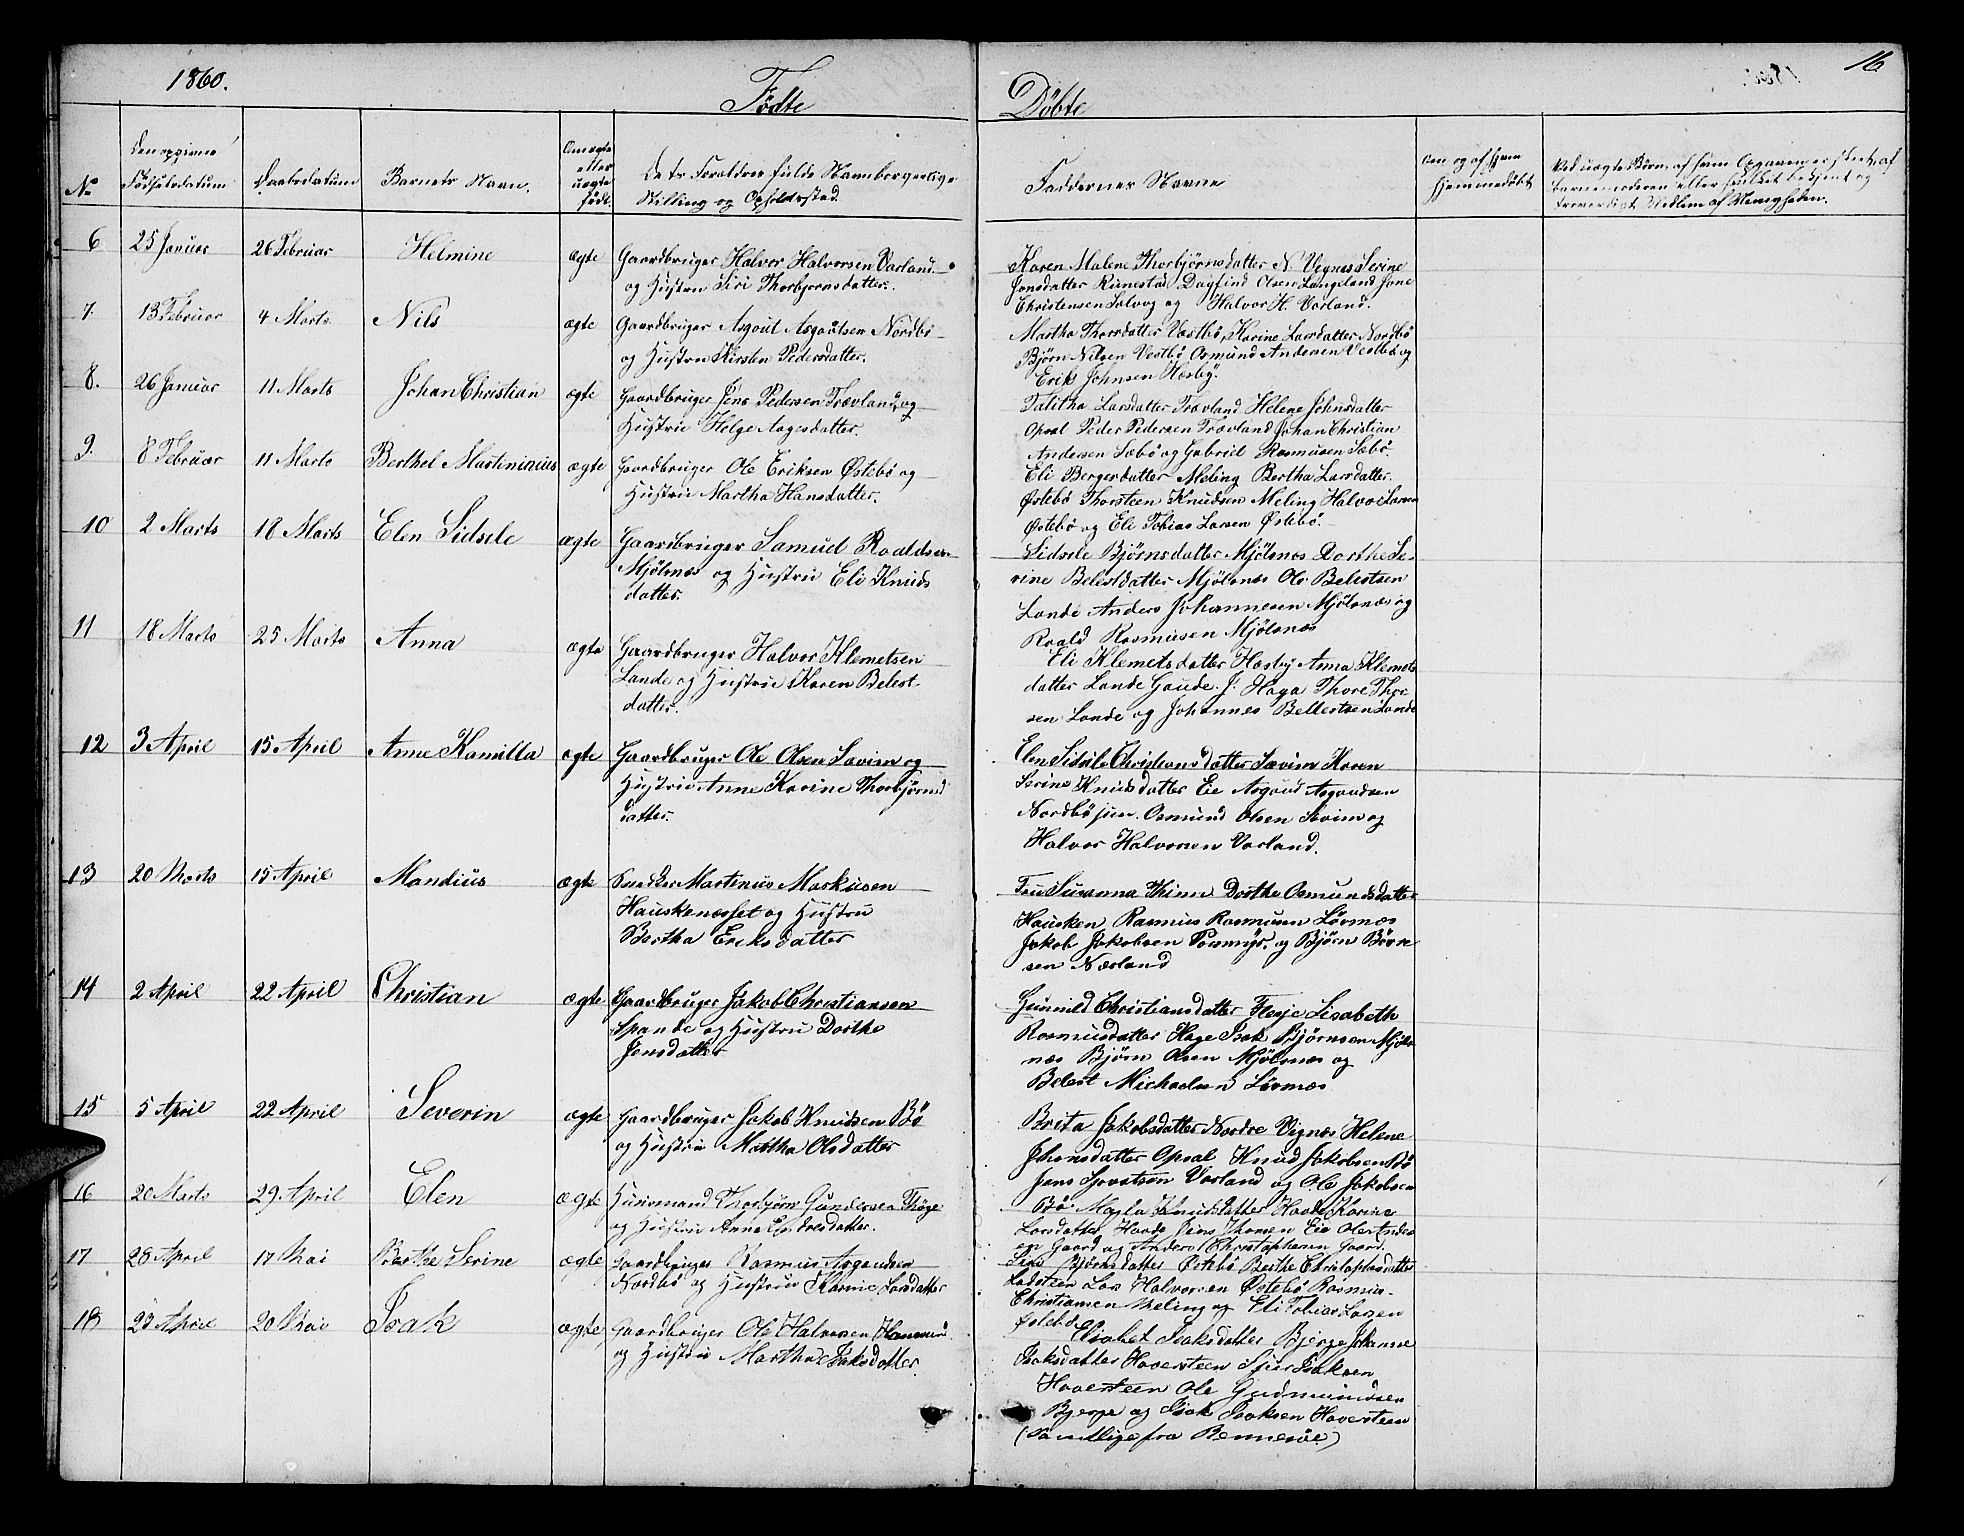 1860. Fødte Døbte 16
No
Den opgivne Fødselsdatum
Daabsdatum
Barnets Navn.
Om ægte eller uægte født.
Dets Forældres fulde Navn borgerlige Stilling og Opholdssted.
Faddernes Navne
Om og af hvem hjemmedøbt
Ved uægte Børn, af hvem Opgaven er skeet, af barnemoderen eller hvilket bekjent og troværdigt Medlem af Menigheden.
6 25 Januar 26 Februar Helmine ægte Gaardbruger Halvor Halvorsen Varland
og Hustru Siri Thorbjørnsdatter.
Karen Malene Thorbjørnsdatter N. Vignes Serine
Jonsdatter Rennestad Dagfind Olsen Langeland Jone
Christensen Salvog og Halvor H. Varland.
7. 13 Februar 4 Marts Nils ægte Gaardbruger Asgout Asgoutsen Nordbø
og Hustru Kirsten Pedersdatter.
Martha Thorsdatter Vestbø, Karine Larsdatter Nordbø
Bjørn Nilsen Vestbø Osmund Andersen Vestbø og
Erik Johnsen Hæsby.
8. 26 Januar 11 Marts Johan Christian ægte Gaardbruger Jens Pedersen Trævland og
Hustru Helge Aagesdatter.
Talitha Larsdatter Trævland Helene Johnsdatter
Opsal Peder Pedersen Trævland Johan Christian
Andersen Sæbø og Gabriel Rasmussen Sæbø.
9. 8 Februar 11 Marts Berthel Marteninius ægte Gaardbruger Ole Eriksen Østebø og
Hustru Martha Hansdatter.
Eli Bergesdatter Meling Bertha Larsdatter
Østebø Thorsteen Knudsen Meling Halvor Larsen
Østebø og Eli Tobias Larsen Østebø.
10 2 Marts 18 Marts Elen Sidsele ægte Gaardbruger Samuel Roaldsen
Mjølsnes og Hustru Eli Knuds
datter.
Sidsele Bjørnsdatter Mjølsnes Dorthe Se-
rine Belestdatter Mjølsnes Ole Belestsen
Lande Anders Johannesen Mjølsnes og
Roald Rasmusen Mjølsnes
11 18 Marts 25 Marts Anna ægte Gaardbruger Halvor Klemetsen
Lande og Hustru Karen Belest-
datter.
Eli Klemetsdatter Hæsby Anna Klemets
datter Lande Gaude J. Haga Thore Thor
sen Lande og Johannes Bellestsen Lande
12 3 April 15 April Anne Kamilla ægte Gaardbruger Ole Olsen Sævim og
Hustru Anne Karine Thorbjørns
datter.
Elen Sidsele Christiansdatter Sævim Karen
Serine Knudsdatter Eie Asgaud Asgaudsen
Nordbø jun. Osmund Olsen Sevim og
Halvor Halvorsen Varland.
13 20 Marts 15 April Mandius ægte Snedker Martinus Markusen
Hauskenesset og Hustru
Bertha Eriksdatter
Fru Susanna Thinn Dorthe Osmundsdatter
Hausken Rasmus Rasmusen Løvnæs
Jakob Jakobsen og Bjørn Bjørn
sen Nærland
14 2 April 22 April Christian ægte Gaardbruger Jakob Christiansen
Spande og Hustru Dorthe
Jensdatter
Gunnild Christiansdatter Flesje Lisabeth
Rasmusdatter Hage Isak Bjørnsen Mjøls
nes Bjørn Olsen Mjølsnes og
Belest Michaelsen Løvnæs
15 5 April 22 April Severin ægte Gaardbruger Jakob Knudsen Bø
og Hustru Martha Olsdatter
Brita Jakobsdatter Nordre Vignes Helene
Jhonsdatter Opsal Knud Jakobsen Bø
Jens Sjovatsen Varland og Ole Jakobsen
Bø.
16 20 Marts 29 April Elen ægte Huusmand Thorbjørn Gundersen Thøge
og Hustru Anne Endresdatter.
Magla Knudsdatter Haade Karine
Larsdatter Haade Jens Thomsen Eie Ole Ander
sen Gaard og Anders Christophersen Gaard.
17 28 April 17 Mai Berthe Serine ægte Gaardbruger Rasmus Asgaudsen
Nordbø og Hustru Karine Larsdatter
Siri Bjørnsdatter Østebø Berthe Christophersdatter
Ladsteen Lars Halvorsen Østebø Rasmus
Christiansen Meling og Eli Tobias Larsen
Østebø
18 23 April 20 Mai Isak ægte Gaardbruger Ole Halvorsen
og Hustru Martha Isaksdatter.
Elisabet Isaksdatter Bjerge Johanne
Isaksdatter Haversteen Sjur Isaksen
Haversteen Ole Gudmundsen
Bjerge og Isak Isaksen Haversteen
(Samtlige fra Rennesøe)